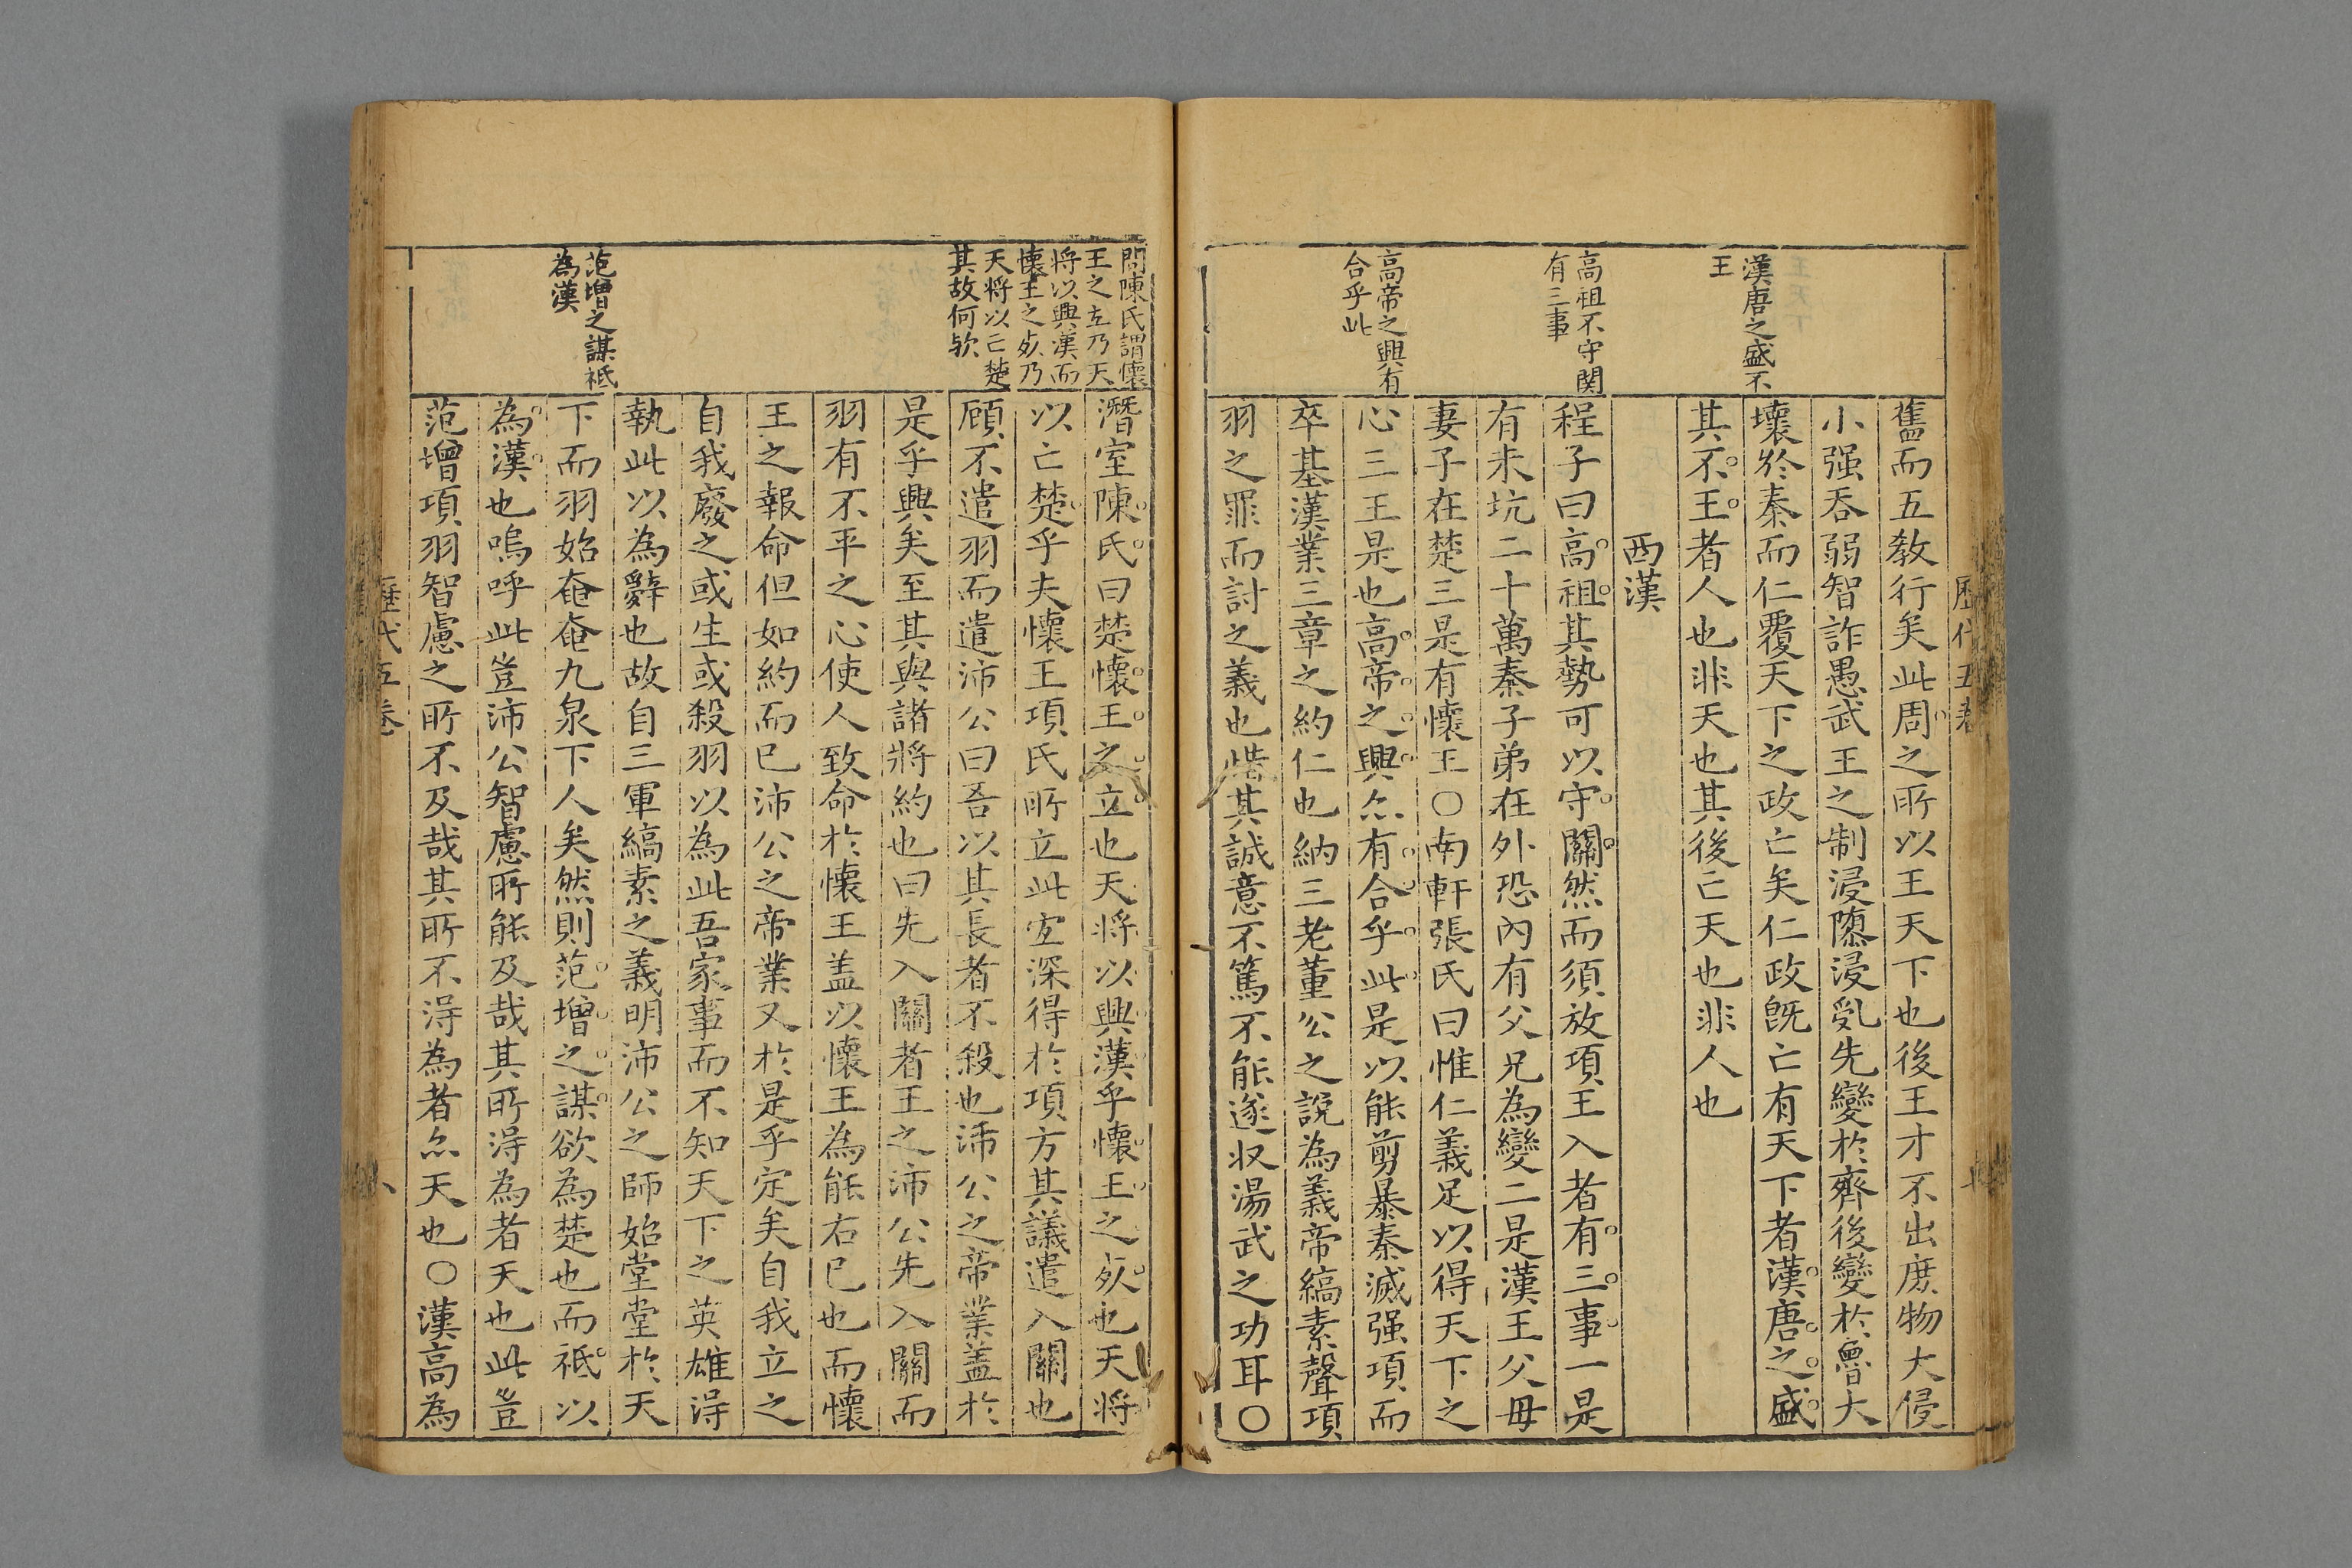 漢唐之盛不
王
高祖不守関
有三事
高帝之興有
合乎此
舊而五教行矣此周之所以王天下也後王才不出庶物大侵
小强吞弱智詐愚武王之制浸隳浸乱先變於齊後變於魯大
壞於秦而仁覆天下之政亡矣仁政既亡有天下者漢唐之盛
其不王者人也非天也其後亡天也非人也
西漢
程子曰高祖其勢可以守關然而須放項王入者有三事一是
有未坑二十萬秦子弟在外恐內有父兄為變二是漢王父毋
妻子在楚三是有懷王○南軒張氏曰惟仁義足以得天下之
心三王是也高帝之興亦有合乎此是以能剪暴秦滅强項而
卒基漢業三章之約仁也納三老董公之說為義帝縞素聲項
羽之罪而討之義也惜其誠意不篤不能遂収湯武之功耳○
問陳氏謂懷
王之立乃天
将以興漢而
懷王之死乃
天將以亡楚
其故何欤
范增之謀祇
為漢
潛室陳氏曰楚懷王之立也天將以興漢乎懷王之死也天将
以亡楚乎夫懷王項氏所立此宜深得於項方其議遣入關也
顧不遣羽而遣沛公曰吾以其長者不殺也沛公之帝業盖於
是乎興矣至其與諸將約也曰先入關者王之沛公先入關而
羽有不平之心使人致命於懷王盖以懷王為能右已也而懷
王之報命但如約而已沛公之帝業又於是乎定矣自我立之
自我廢之或生或殺羽以為此吾家事而不知天下之英雄淂
執此以為辭也故自三軍縞素之義明沛公之師始堂堂於天
下而羽始奄奄九泉下人矣然則范增之謀欲為楚也而祇以
為漢也嗚呼此豈沛公智慮所能及哉其所淂為者天也此豈
范增項羽智慮之所不及哉其所不淂為者亦天也○漢高為
歷代五卷